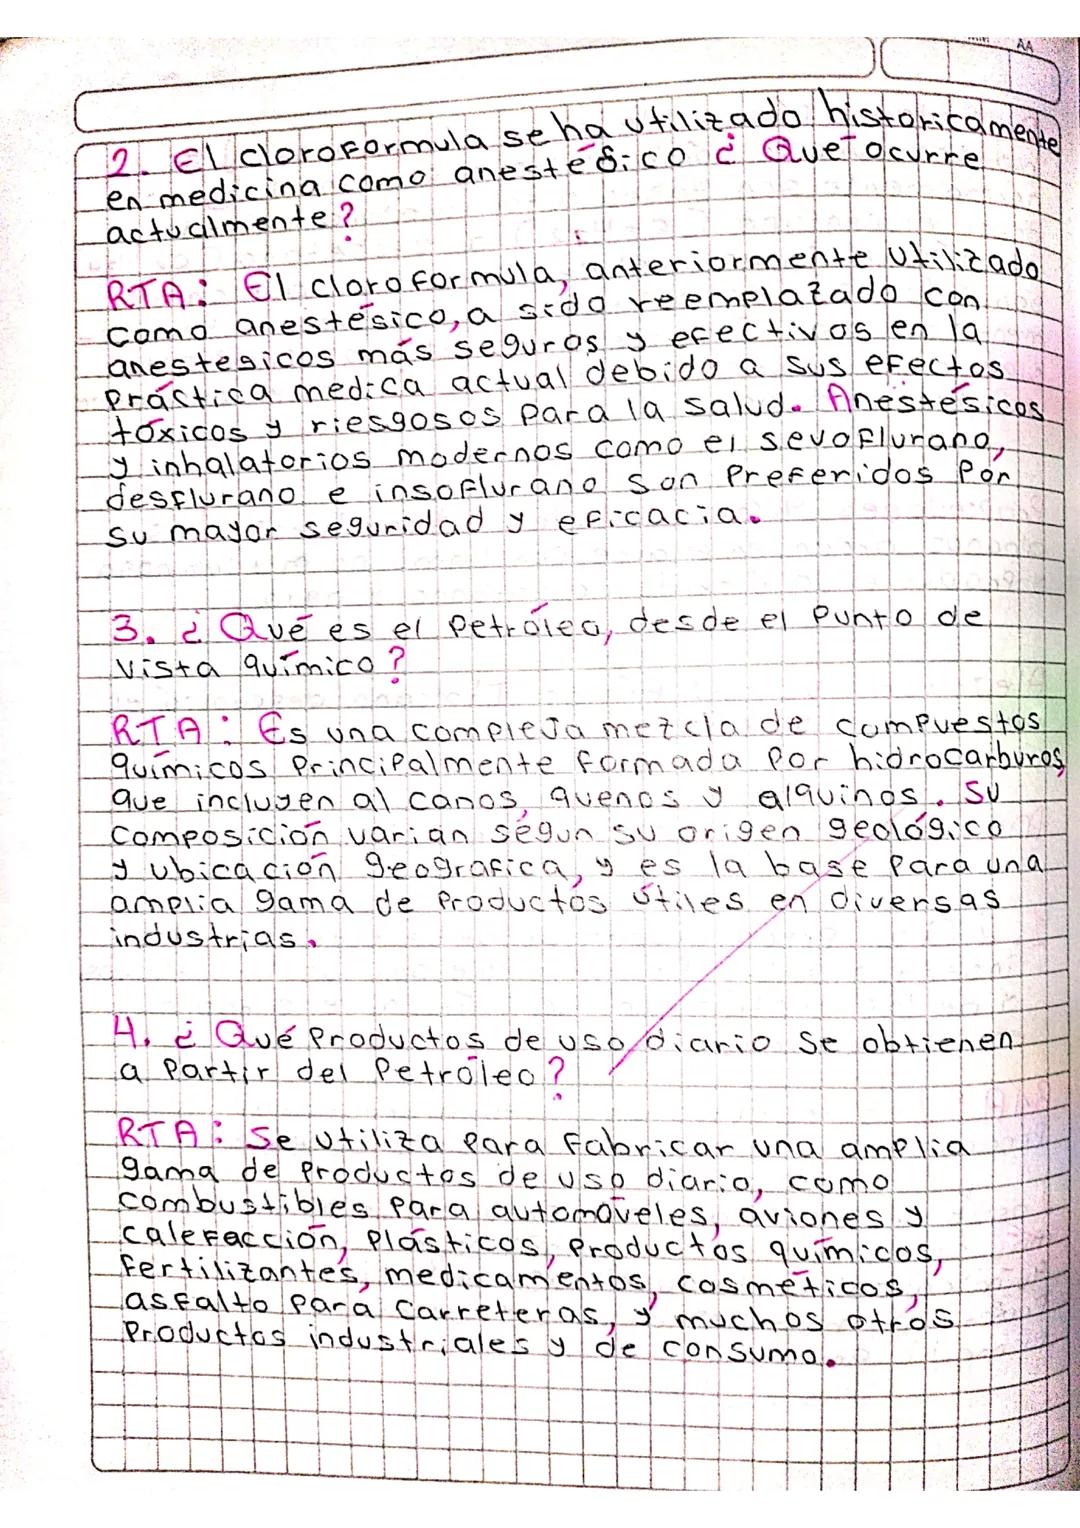 AA
2. El cloroformula se ha utilizado historicamente
en medicina como anestésico ¿ Que ocurre
actualmente?
RTA: El cloroformula, anteriormente utilizado
como anestésico, a sido reemplazado con
anestesicos más seguros y efectivos en la
práctica medica actual debido a sus efectos
tóxicos y riesgosos para la salud. Anestésicos
y inhalatorios modernos como el sevoflurano,
desflurano e insoflurano son preferidos por
su mayor seguridad y eficacia.
3. ¿ Qué es el petróleo, desde el punto de
vista químico?
RTA: Es una compleja mezcla de compuestos
químicos principalmente formada por hidrocarburos
que incluyen al canos, quenos y alquinos. Su
composición varian según su origen geológico
y ubicación geografica, y es la base para una
amplia gama de productos útiles en diversas
industrias.
4. ¿ Qué productos de uso diario se obtienen
a partir del petróleo?
RTA: Se utiliza para fabricar una amplia
gama de productos de uso diario, como
combustibles para automóveles, aviones y
calefacción, plásticos, productos químicos,
fertilizantes, medicamentos, cosméticos,
asfalto para carreteras, y muchos otros
productos industriales y de consumo.